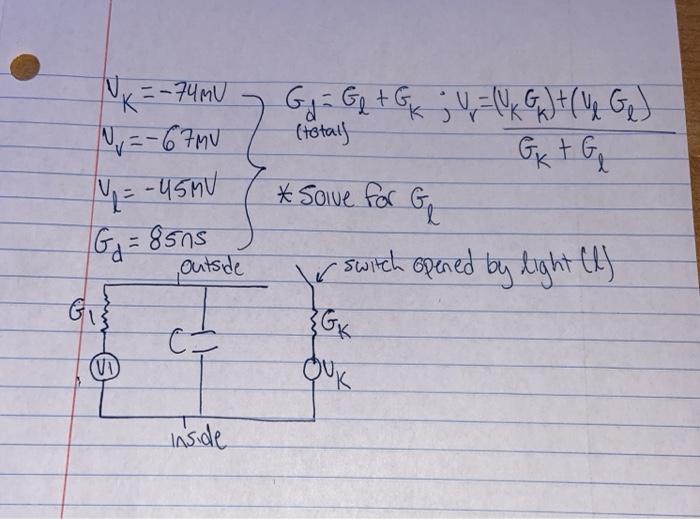 V_K = -74mV
G_d = G_l + G_K ; V_r = (V_K G_K) + (V_l G_l)
(total)
G_K + G_l
V_r = -67mV
V_l = -45mV
* Solve for G_l
G_d = 85ns
outside
switch opened by light (l)
G_l
C
G_K
V_l
V_K
inside